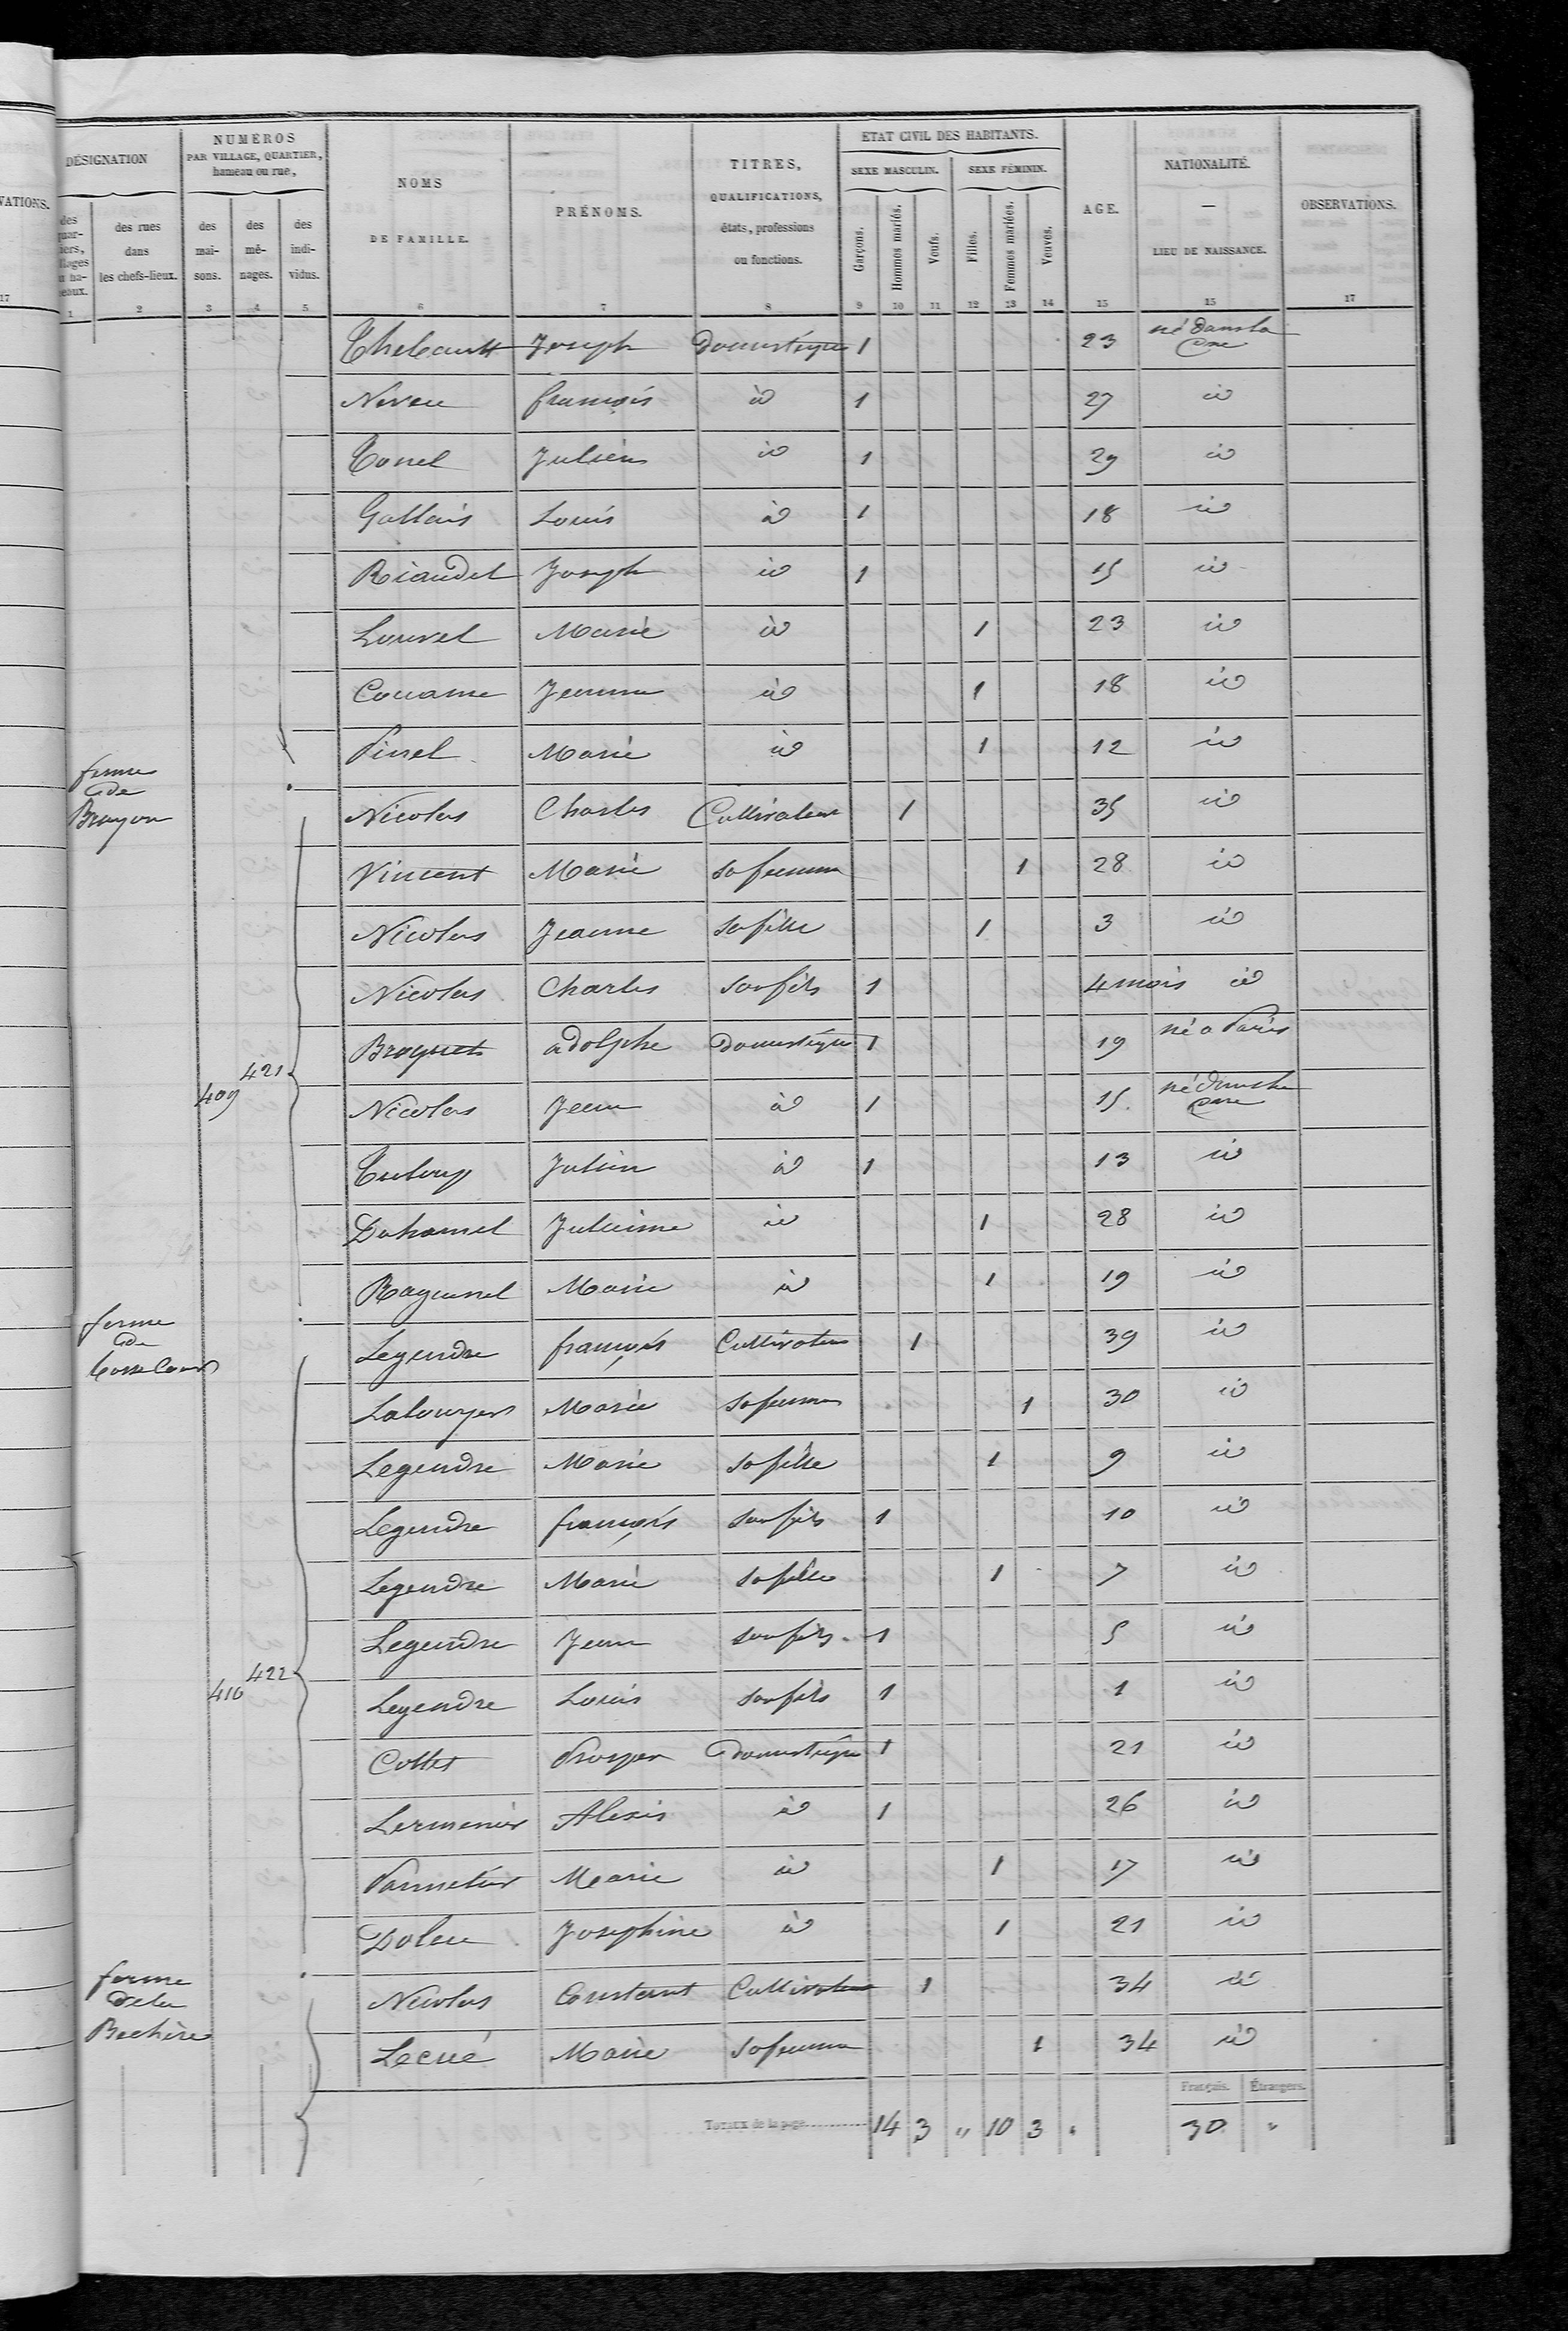 VATIONS.
17
DÉSIGNATION
NUMÉROS
PAR VILLAGE, QUARTIER,
hameau ou rue,
NOMS
DE FAMILLE.
PRÉNOMS.
TITRES,
QUALIFICATIONS,
états, professions
ou fonctions.
ETAT CIVIL DES HABITANTS.
SEXE MASCULIN. SEXE FÉMININ.
Garçons. Hommes mariés. Veufs. Filles. Femmes mariées. Veuves.
AGE.
NATIONALITÉ.
—
LIEU DE NAISSANCE.
OBSERVATIONS.
des rues
dans
les chefs-lieux.
des
mai-
sons.
des
mé-
nages.
des
indi-
vidus.
1 2 3 4 5 6 7 8 9 10 11 12 13 14 15 15 17
Thebault Joseph Domestique 1 23 né dans la Cne
Neveu françois id 1 27 id
Tonel Julien id 1 29 id
Gallais Louis id 1 18 id
Riaudel Joseph id 1 15 id
Louvel Marie id 1 23 id
Couasne Jeanne id 1 18 id
Pinel Marie id 1 12 id
ferme
de
Brayon
409 421
Nicolas Charles Cultivateur 1 35 id
Vincent Marie sa femme 1 28 id
Nicolas Jeanne sa fille 1 3 id
Nicolas Charles son fils 1 4 mois id
Broquet adolphe Domestique 1 19 né a Paris
Nicolas Jean id 1 15 né dans la Cne
Tuloup Julien id 1 13 id
Duhamel Julienne id 1 28 id
Raguenel Marie id 1 19 id
ferme
de
410 422
Legendre françois Cultivateur 1 39 id
Marie sa femme 1 30 id
Legendre Marie sa fille 1 9 id
Legendre françois son fils 1 10 id
Legendre Marie sa fille 1 7 id
Legendre Jean son fils 1 5 id
Legendre Louis son fils 1 1 id
Collet Prosper Domestique 1 21 id
Lermenier Alexis id 1 26 id
Parmetier Marie id 1 17 id
Doleu Josephine id 1 21 id
ferme
de la
Bechère
Nicolas Constant Cultivateur 1 34 id
Lecué Marie sa femme 1 34 id
Français. Étrangers.
Totaux de la page 14 3 " 10 3 " 30 "